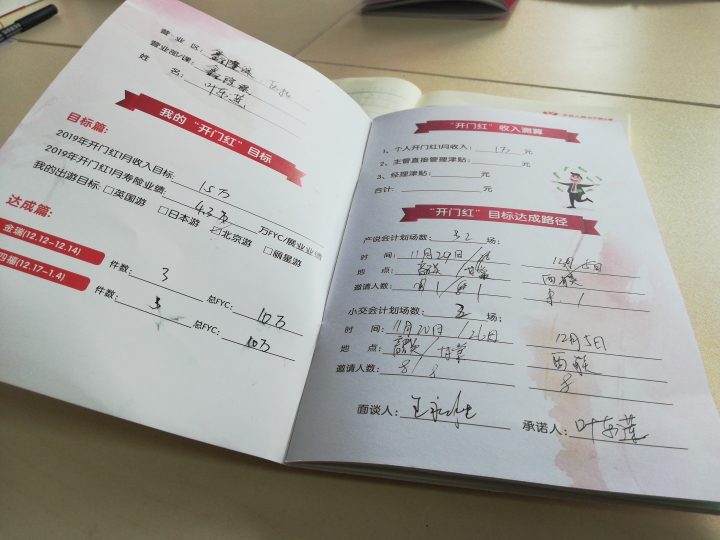 营 业 区：
营业部/课：
姓 名：叶东莲
我的“开门红”目标
目标篇：
2019年开门红1月收入目标： 15万
2019年开门红1月寿险业绩： 4.3万 万FYC/展业业绩
我的出游目标：□英国游 □日本游 ☑北京游 □丽星游
达成篇：
金瑞(12.12-12.14)
件数： 3 总FYC： 10万
四福(12.17-1.4)
件数： 3 总FYC： 10万
“开门红”收入测算
1、个人开门红1月收入： 1万 元
2、主管直接管理津贴： 元
3、经理津贴： 元
合计： 元
“开门红”目标达成路径
产说会计划场数： 场；
时 间：11月29日/ 12月5日
地 点： 西
邀请人数： 1 / 1 1
小交会计划场数： 场；
时 间：11月20日/26日 12月5日
地 点： 西
邀请人数： 8 / 8 8
面谈人：王
承诺人：叶东莲